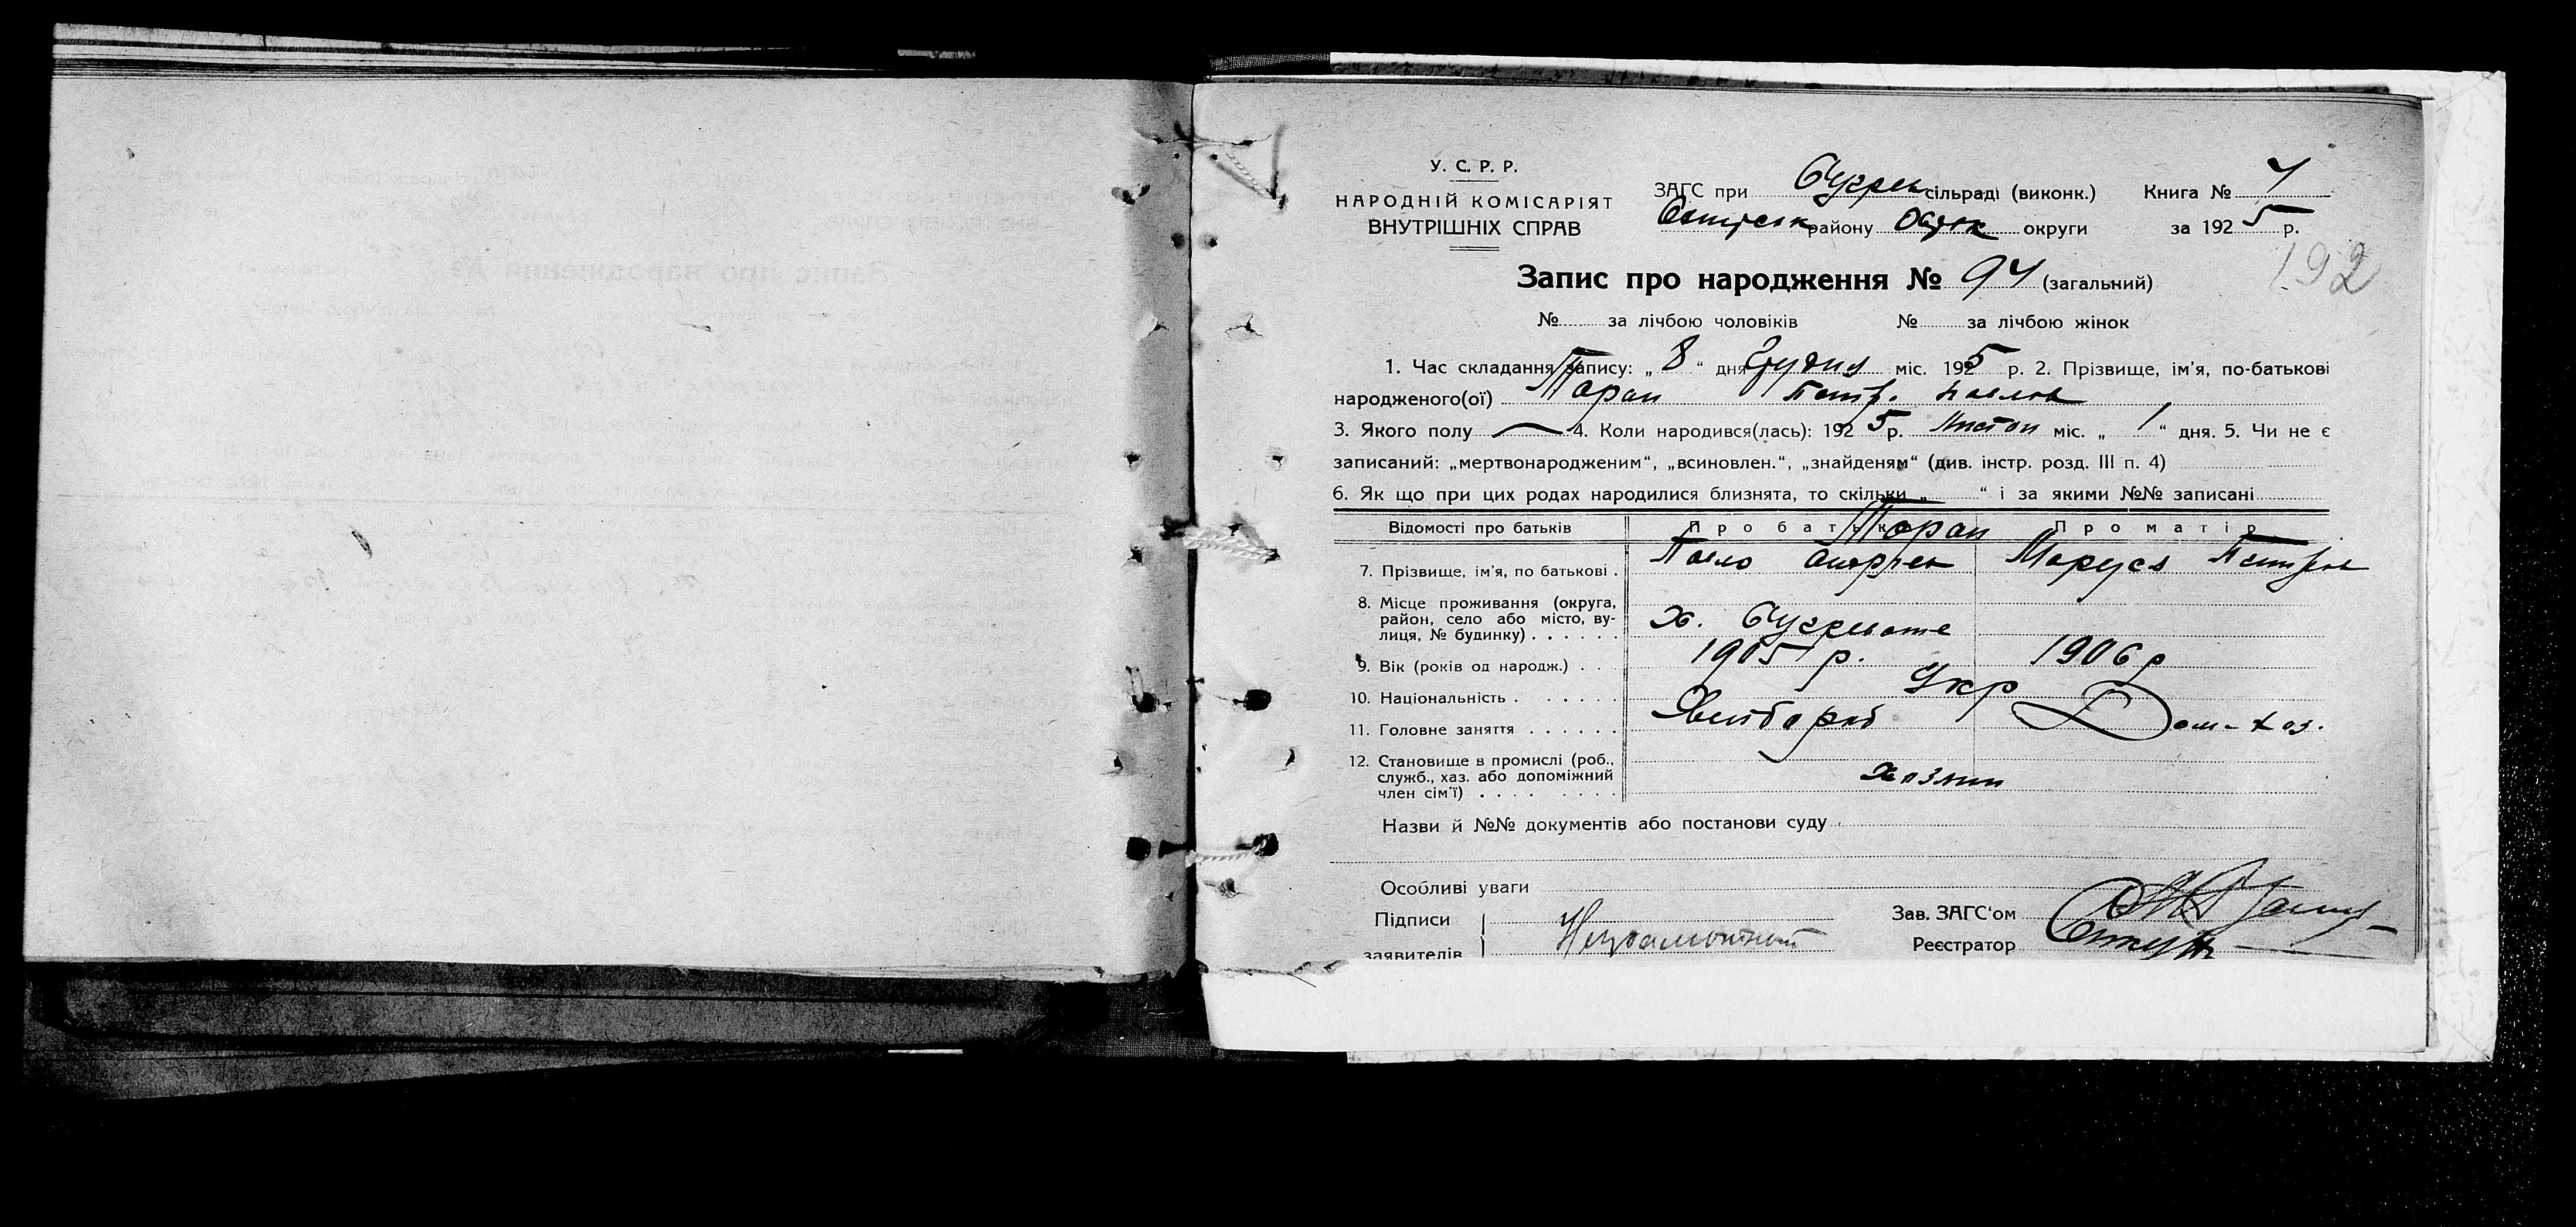 У. С. Р. Р.
НАРОДНІЙ КОМІСАРІЯТ
ВНУТРІШНІХ СПРАВ
ЗАГС при сільраді (виконк.) Книга №
району округи за 1925 р.
192
Запис про народження № 94 (загальний)
№ за лічбою чоловіків № за лічбою жінок
1. Час складання запису: „ 8 “ дня Грудня міс. 1925 р. 2. Прізвище, ім'я, по-батькові
народженого(ої) Торан Петр. Павлов
3. Якого полу — 4. Коли народився(лась): 1925 р. Листоп міс. „ 1 “ дня. 5. Чи не є
записаний: „мертвонародженим“, „всиновлен.“, „знайденям“ (див. інстр. розд. III п. 4)
6. Як що при цих родах народилися близнята, то скільки „ “ і за якими №№ записані
Відомості про батьків Про батька Про матір
Торан
7. Прізвище, ім'я, по батькові . Павло Маруся Петров
8. Місце проживання (округа,
район, село або місто, ву-
лиця, № будинку) . . . . . . х.
9. Вік (років од народж.) . . . 1905 р. 1906 р
10. Національність . . . . . . Укр
11. Головне заняття . . . . . . Хлібороб Дом-хаз.
12. Становище в промислі (роб.,
служб., хаз. або допоміжний
член сім'ї) . . . . . . . . хозяин
Назви й №№ документів або постанови суду
Особливі уваги
Підписи Зав. ЗАГС‘ом
заявителів Реєстратор